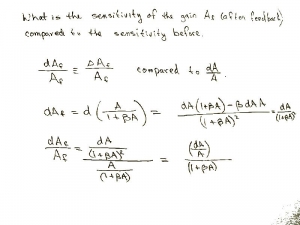 What is the sensitivity of the gain Af (after feedback)
compared to the sensitivity before.
dAf/Af ≡ ΔAf/Af compared to dA/A.
dAf = d(A/(1+βA)) = (dA(1+βA) - β dA A)/(1+βA)² = dA/(1+βA)²
dAf/Af = (dA/(1+βA)²)/(A/(1+βA)) = (dA/A)/(1+βA)